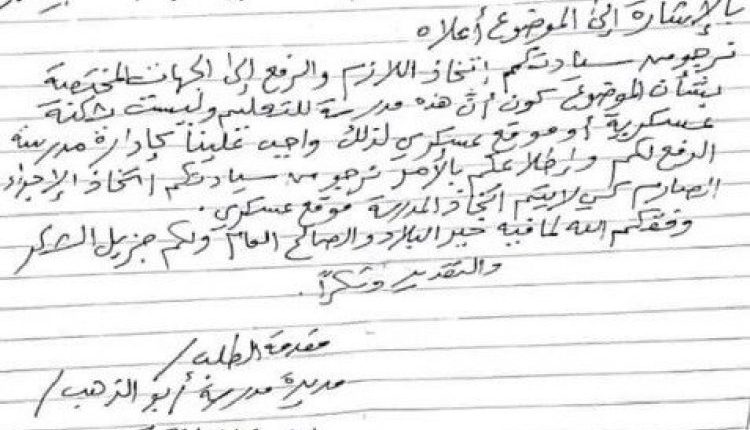 بالإشارة إلى الموضوع أعلاه
نرجو من سيادتكم إتخاذ اللازم والرفع إلى الجهات المختصة
بشأن الموضوع كون أن هذه مدرسة للتعليم وليست ثكنة
عسكرية أو موقع عسكري لذلك واجب علينا كإدارة مدرسة
الرفع لكم وإطلاعكم بالأمر نرجو من سيادتكم اتخاذ الإجراء
الصارم كي لا يتم اتخاذ المدرسة موقع عسكري.
وفقكم الله لما فيه خير البلاد والصالح العام ولكم جزيل الشكر
والتقدير وشكراً.
مقدمة الطلب /
مديرة مدرسة / أبو الذهب /